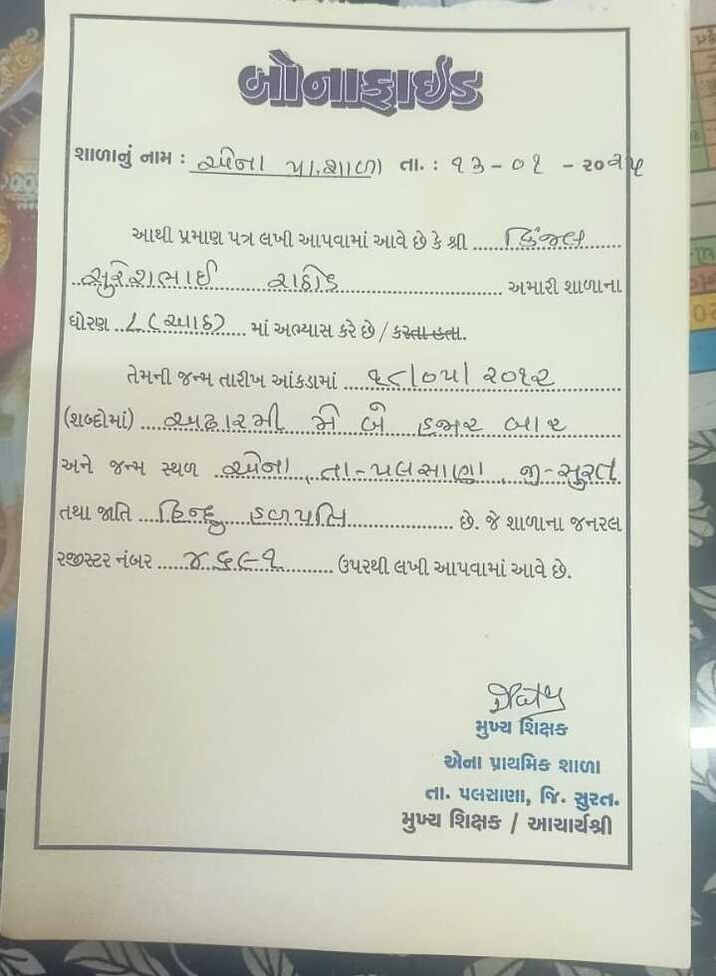 બોનાફાઇડ
શાળાનું નામ : એના પ્રા.શાળા તા. : ૧૩-૦૧-૨૦૨૫
આથી પ્રમાણ પત્ર લખી આપવામાં આવે છે કે શ્રી ..... કિંજલ .....
..સુરેશભાઈ રાઠોડ.......... અમારી શાળાના
ધોરણ ..૮(આઠ).... માં અભ્યાસ કરે છે / કરતા હતા.
તેમની જન્મ તારીખ આંકડામાં ....૧૮/૦૫/૨૦૧૨........
(શબ્દોમાં) ....અઢારમી મે બે હજાર બાર
અને જન્મ સ્થળ એના, તા-પલસાણા, જી-સુરત.
તથા જાતિ ...હિન્દુ હળપતિ............ છે. જે શાળાના જનરલ
રજીસ્ટર નંબર .....૪૬૯૧....... ઉપરથી લખી આપવામાં આવે છે.
મુખ્ય શિક્ષક
એના પ્રાથમિક શાળા
તા. પલસાણા, જિ. સુરત.
મુખ્ય શિક્ષક / આચાર્યશ્રી